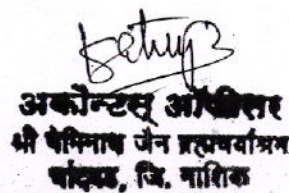 अकौन्टस् ऑफीसर
श्री नेमिनाथ जैन ब्रह्मचर्याश्रम
चांदवड, जि. नाशिक